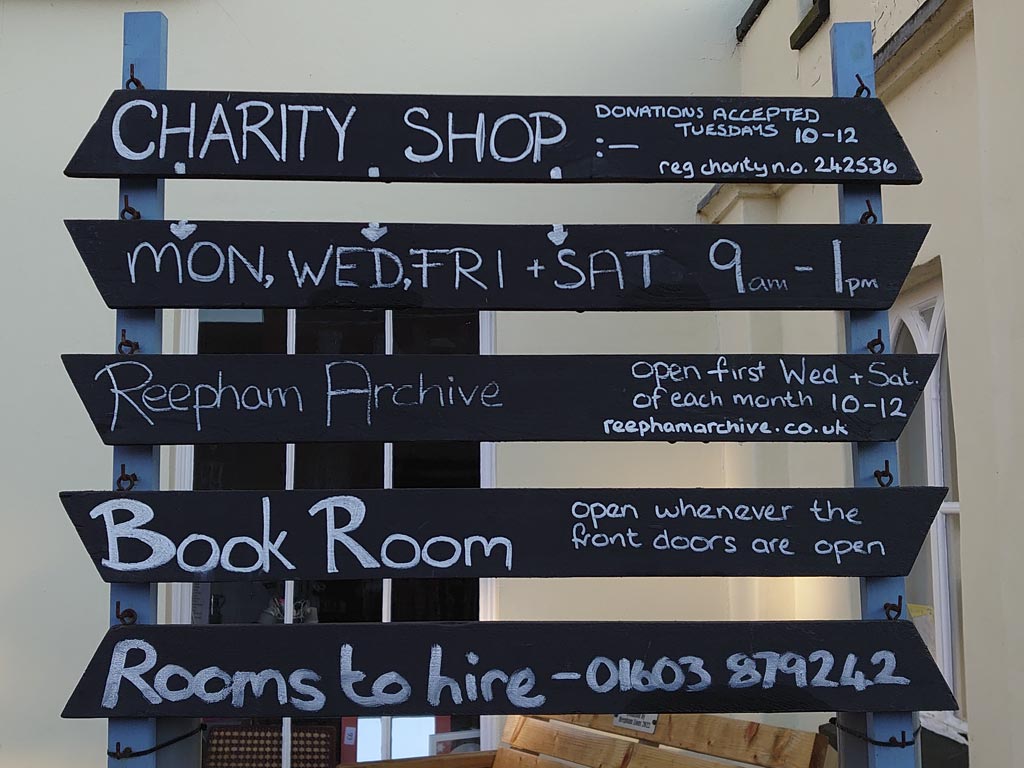 CHARITY SHOP :-
DONATIONS ACCEPTED
TUESDAYS 10-12
reg charity n.o. 242536
MON, WED, FRI + SAT 9am - 1pm
Reepham Archive
open first Wed + Sat.
of each month 10-12
reephamarchive.co.uk
Book Room
open whenever the
front doors are open
Rooms to hire - 01603 879242